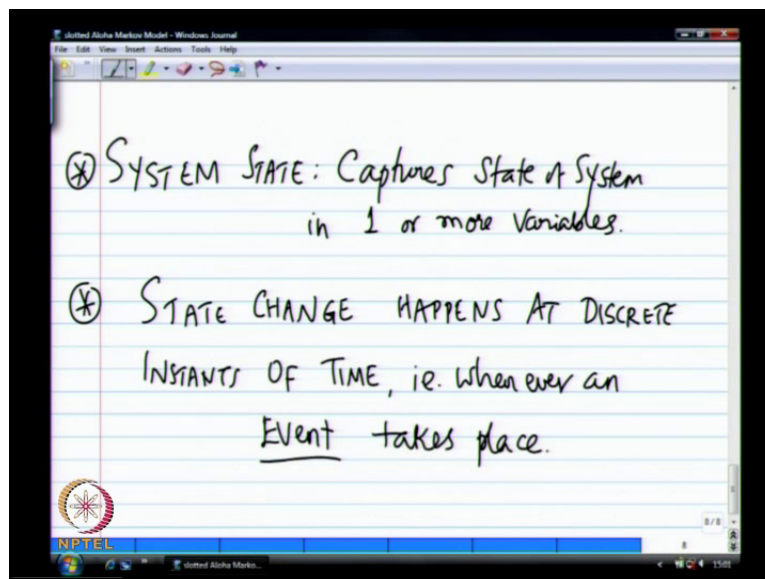 slotted Aloha Markov Model - Windows Journal
File Edit View Insert Actions Tools Help
SYSTEM STATE: Captures State of System
in 1 or more Variables.
STATE CHANGE HAPPENS AT DISCRETE
INSTANTS OF TIME, ie. Whenever an
Event takes place.
8/8
8
NPTEL
slotted Aloha Marko...
15:01